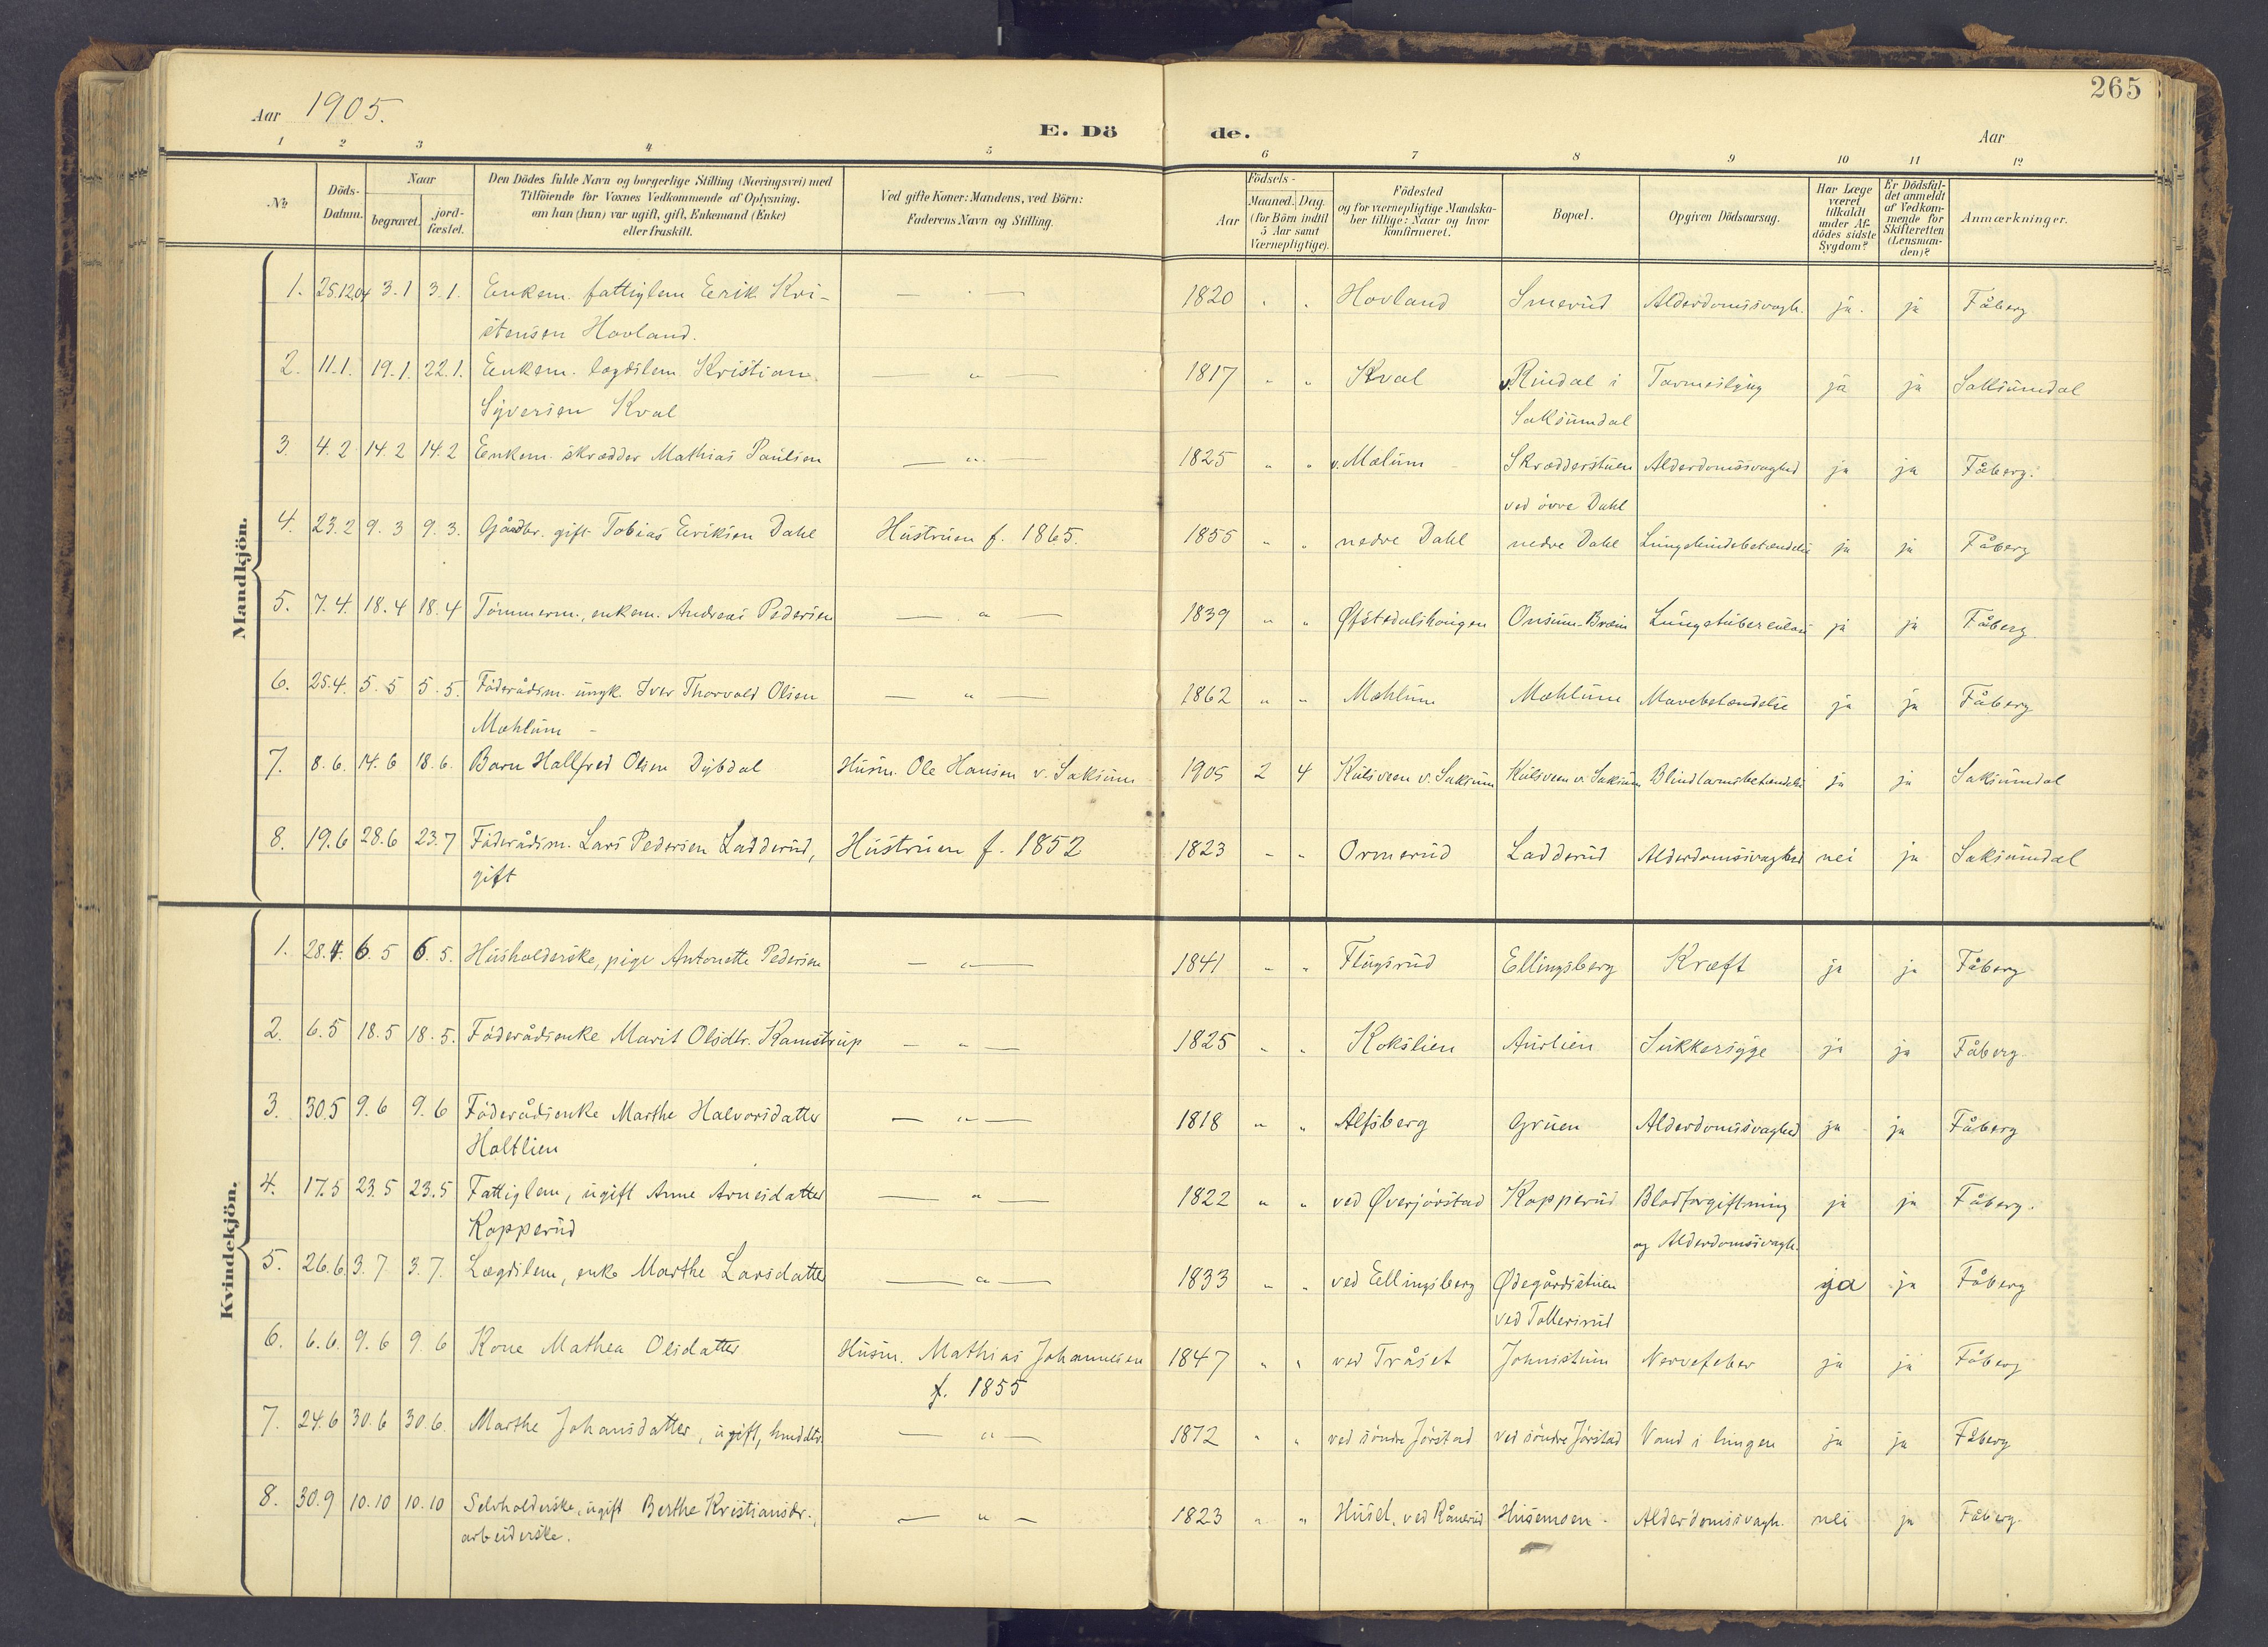 265
Aar 1905.
E. Dö de.
Aar
1 2 3 4 5 6 7 8 9 10 11 12
No
Döds-Datum.
Naar
begravet.
jord-fæstet.
Den Dödes fulde Navn og borgerlige Stilling (Næringsvei) med
Tilföiende for Voxnes Vedkommende af Oplysning.
om han (hun) var ugift, gift, Enkemand (Enke)
eller fraskilt.
Ved gifte Koner: Mandens, ved Börn:
Faderens Navn og Stilling.
Aar
Födsels-
Maaned. Dag.
(for Börn indtil
5 Aar samt
Værnepligtige).
Födested
og for værnepligtige Mandska-
ber tillige: Naar og hvor
konfirmeret.
Bopæl.
Opgiven Dödsaarsag.
Har Læge
været
tilkaldt
under Af-
dödes sidste
Sygdom?
Er Dödsfal-
det anmeldt
af Vedkom-
mende for
Skifteretten
(Lensman-
den)?
Anmærkninger.
Mandkjön.
1. 25.12.04 3.1 3.1. Enkem. fattiglem Eerik Kri- — " — 1820 " " Hovland Smerud Alderdomssvagh. ja. ja Fåberg
stensen Hovland.
2. 11.1. 19.1. 22.1. Enkem. lægdslem Kristian — " — 1817 " " Kval v. Rindal i Tarmeslyng ja ja Saksumdal
Syversen Kval Saksumdal
3. 4.2 14.2 14.2 Enkem. skrædder Mathias Paulsen — " — 1825 " " v. Mælum Skrædderstuen Alderdomssvaghed ja ja Fåberg.
ved övre Dahl
4. 23.2 9.3 9.3. Gårdbr. gift Tobias Eeriksen Dahl Hustruen f. 1865. 1855 " " nedre Dahl nedre Dahl Lungehindebetændelse ja ja Fåberg
5. 7.4. 18.4 18.4 Tömmerm., enkem. Andreas Pedersen — " — 1839 " " Øfstedalshaugen Onsum-Bræin Lungetuberculose ja ja Fåberg
6. 25.4. 5.5 5.5. Föderådsm. ungk. Iver Thorvald Olsen — " — 1862 " " Mæhlum Mæhlum Mavebetændelse ja ja Fåberg
Mæhlum
7. 8.6. 14.6 18.6. Barn Hallfred Olsen Dybdal Husm. Ole Hansen v. Saksum 1905 2 4 Kulsveen v. Saksum Kulsveen v. Saksum Blindtarmsbetændelse ja ja Saksumdal
8. 19.6 28.6 23.7 Föderådsm. Lars Pedersen Ladderud, Hustruen f. 1852 1823 " " Ormerud Ladderud Alderdomssvaghed nei ja Saksumdal
gift
Kvindekjön.
1. 28.4. 6.5 6.5. Husholderske, pige Antonette Pedersen — " — 1841 " " Flugsrud Ellingsberg Kræft ja ja Fåberg
2. 6.5 18.5 18.5. Föderådsenke Marit Olsdtr. Kamstrup — " — 1825 " " Kokslien Aurlien Sukkersyge ja ja Fåberg
3. 30.5 9.6 9.6 Föderådsenke Marthe Halvorsdatter — " — 1818 " " Alfsberg Gruen Alderdomssvaghed ja ja Fåberg
Holtlien
4. 17.5 23.5 23.5 Fattiglem, ugift Anne Arnesdatter — " — 1822 " " ved Øverjörstad Kopperud Blodforgiftning ja ja Fåberg.
Kopperud og Alderdomssvagh.
5. 26.6. 3.7 3.7. Lægdslem, enke Marthe Larsdatter — " — 1833 " " ved Eellingsberg Ødegårdsstuen ja ja Fåberg
ved Tollersrud
6. 6.6. 9.6 9.6 Kone Mathea Olsdatter Husm. Mathias Johannesen 1847 " " ved Tråset Johnsstuen Nervefeber ja ja Fåberg
f. 1855
7. 24.6 30.6 30.6. Marthe Johansdatter, ugift, husddtr. — " — 1872 " " ved söndre Jörstad ved söndre Jörstad Vand i lungen ja ja Fåberg
8. 30.9 10.10 10.10 Selvholderske, ugift Berthe Kristiansdr., — " — 1823 " " Huset. ved Rånerud Husemoen. Alderdomssvagh. nei ja Fåberg.
arbeiderske.